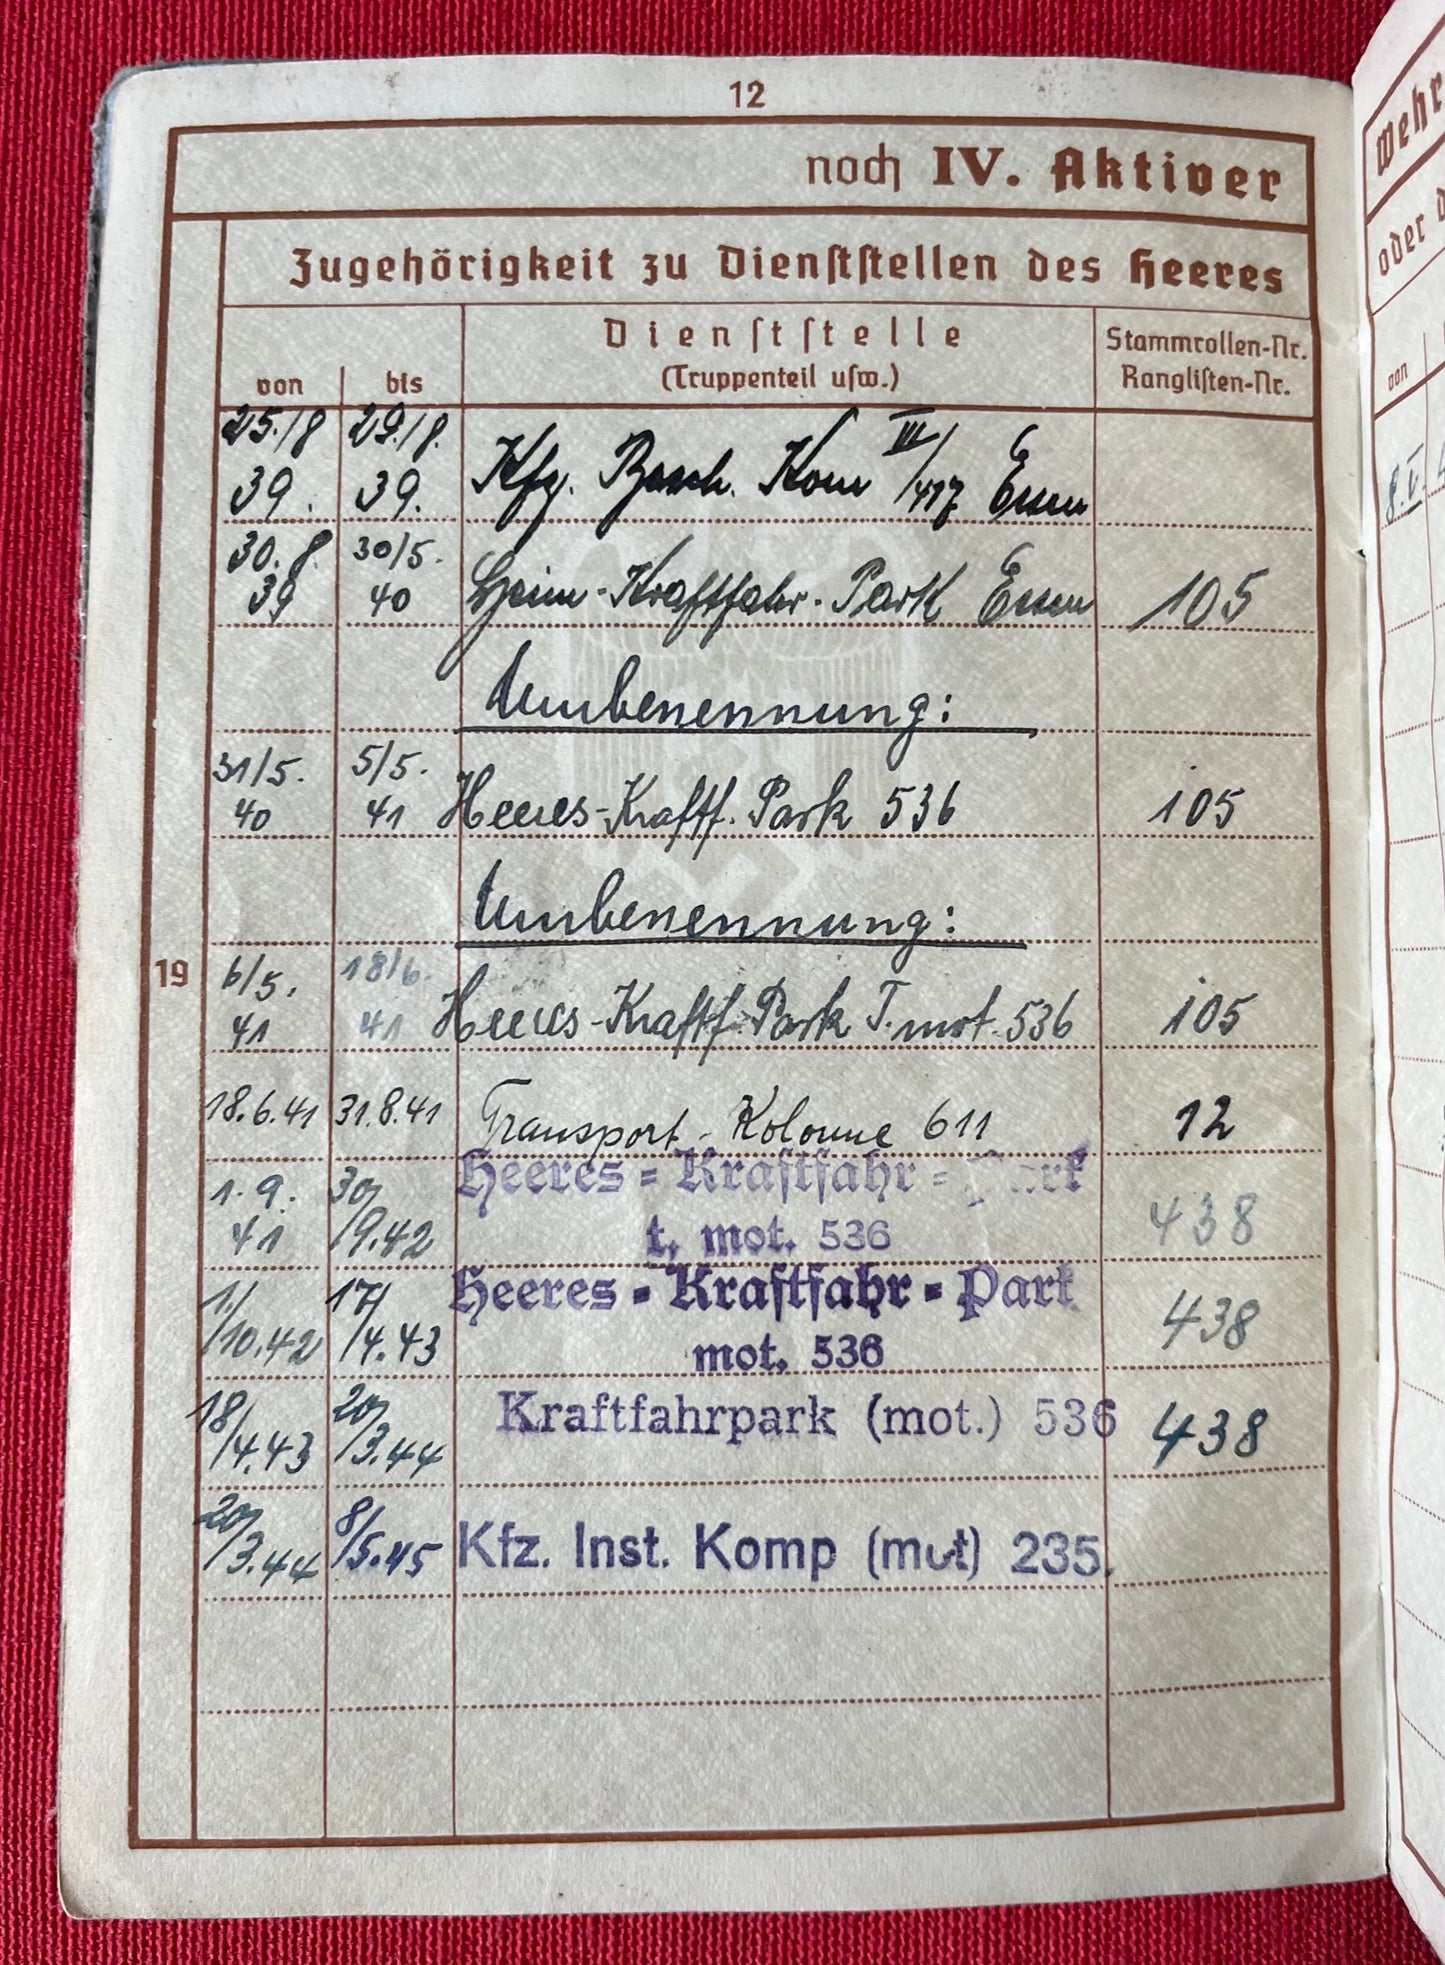 12
noch IV. Aktiver
Zugehörigkeit zu Dienststellen des Heeres
von bis
Dienststelle
(Truppenteil usw.)
Stammrollen-Nr.
Ranglisten-Nr.
25./8 39. 29./8. 39. Kfz. Besch. Kom III/417 Essen
30. 8. 39 30/5. 40 Heim-Kraftfahr-Park Essen 105
Umbenennung:
31/5. 40 5/5. 41 Heeres-Kraftf. Park 536 105
Umbenennung:
19
6/5. 41 18/6. 41 Heeres-Kraftf. Park T. mot. 536 105
18.6.41 31.8.41 Transport-Kolonne 611 12
1. 9. 41 30/9.42 Heeres-Kraftfahr-Park
t. mot. 536 438
1./10.42 17/4.43 Heeres-Kraftfahr-Park
mot. 536 438
18/4.43 20/3.44 Kraftfahrpark (mot.) 536 438
20/3.44 8/5.45 Kfz. Inst. Komp (mot) 235.
Wehr
oder d
von
8.V.